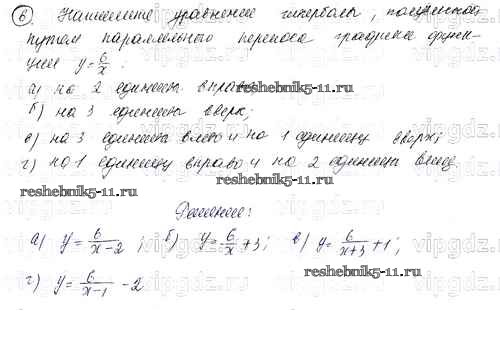 6) Напишите уравнение гиперболы, полученной
путем параллельного переноса графика функ-
ции y = 6/x :
а) на 2 единицы вправо;
reshebnik5-11.ru
б) на 3 единицы вверх;
в) на 3 единицы влево и на 1 единицу вверх;
г) на 1 единицу вправо и на 2 единицы вниз.
reshebnik5-11.ru
reshebnik5-11.ru
Решение:
а) y = 6/(x-2) ; б) y = 6/x + 3; в) y = 6/(x+3) + 1;
reshebnik5-11.ru
г) y = 6/(x-1) - 2